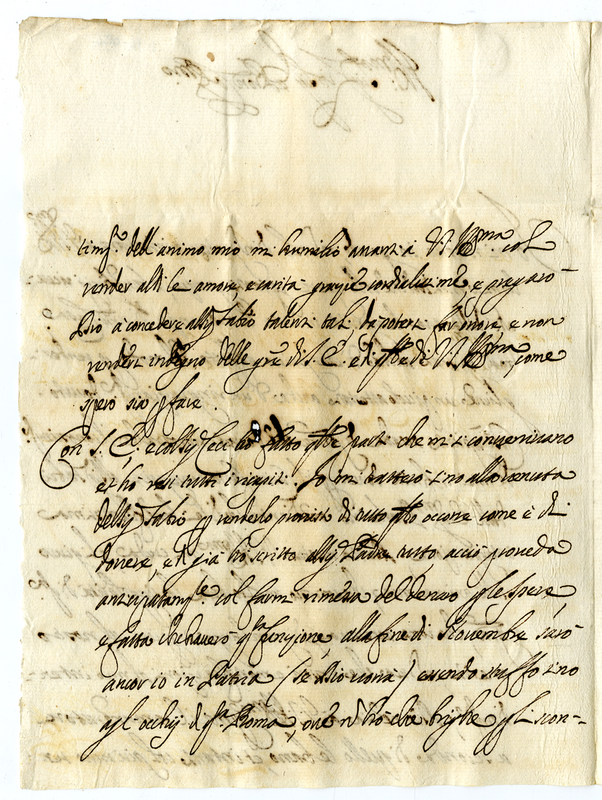 dell'animo mio m'humilio avanti à V.S. Ill.ma col
render alli amore, e carità grazie cordialissime, e pregarò
Dio à concedere allo S.r Fabio talenti tali da poterti far honore, e non
rendersi indegno delle gre di S. E. e di V.S. Ill.ma come
spero sia p fare.
Con S. E. e col Sig. hò fatto q.lle parti che mi si convenivano
et hò resi tutti i recapiti. Io mi tratterò sino alla venuta
dello S.r Fabio p renderlo provisto di tutto q.llo occorre come è di
dovere, e di già hò scritto allo S.r Padre tutto acciò proveda
anticipatam.te col farmi rimessa del denaro p le spese,
e fatta che haverò q.sta funzione, alla fine di Novembre sarò
ancor io in Patria (se Dio vorrà) essendo stuffo sino
agl'occhij di q.sta Roma, ove n hò che brighe p gli scon-